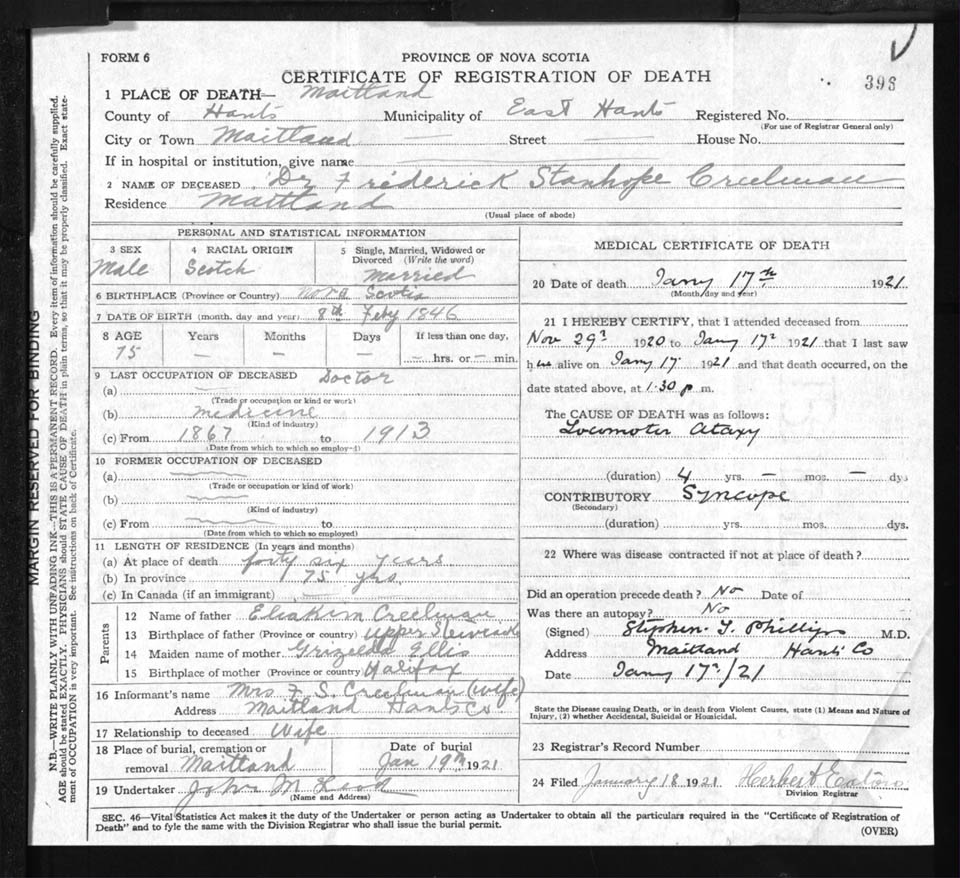 FORM 6
PROVINCE OF NOVA SCOTIA
CERTIFICATE OF REGISTRATION OF DEATH
398
1 PLACE OF DEATH— Maitland
County of Hants Municipality of East Hants Registered No.
(For use of Registrar General only)
City or Town Maitland Street House No.
If in hospital or institution, give name
2 NAME OF DECEASED Dr Frederick Stanhope Creelman
Residence Maitland
(Usual place of abode)
PERSONAL AND STATISTICAL INFORMATION
3 SEX Male
4 RACIAL ORIGIN Scotch
5 Single, Married, Widowed or Divorced (Write the word) Married
6 BIRTHPLACE (Province or Country) Nova Scotia
7 DATE OF BIRTH (month, day and year) 8th Feby 1846
8 AGE Years Months Days If less than one day,
75 — — — — hrs. or — min.
9 LAST OCCUPATION OF DECEASED Doctor
(a)
(Trade or occupation or kind or work)
(b) medicine
(Kind of industry)
(c) From 1867 to 1913
(Date from which to which so employed)
10 FORMER OCCUPATION OF DECEASED
(a)
(Trade or occupation or kind of work)
(b)
(Kind of industry)
(c) From to
(Date from which to which so employed)
11 LENGTH OF RESIDENCE (In years and months)
(a) At place of death forty six years
(b) In province 75 yrs.
(c) In Canada (if an immigrant)
Parents
12 Name of father Eliakim Creelman
13 Birthplace of father (Province or country) Upper Stewiacke
14 Maiden name of mother Grizelda Ellis
15 Birthplace of mother (Province or country) Halifax
16 Informant's name Mrs F. S. Creelman (wife)
Address Maitland Hants Co
17 Relationship to deceased Wife
18 Place of burial, cremation or removal Maitland
Date of burial Jan 19th 1921
19 Undertaker John M Leod
(Name and Address)
MEDICAL CERTIFICATE OF DEATH
20 Date of death Jany 17th 1921
(Month/day and year)
21 I HEREBY CERTIFY, that I attended deceased from
Nov 29 1920 to Jany 17 1921 that I last saw
him alive on Jany 17 1921 and that death occurred, on the
date stated above, at 1.30 p m.
The CAUSE OF DEATH was as follows:
Locomotor Ataxy
(duration) 4 yrs. — mos. — dys
CONTRIBUTORY Syncope
(Secondary)
(duration) yrs. mos. dys.
22 Where was disease contracted if not at place of death?
Did an operation precede death? No Date of
Was there an autopsy? No
(Signed) Stephen Phillips M.D.
Address Maitland Hants Co
Date Jany 17/21
State the Disease causing Death, or in death from Violent Causes, state (1) Means and Nature of
Injury, (2) whether Accidental, Suicidal or Homicidal.
23 Registrar's Record Number
24 Filed January 18 1921 Herbert Eaton
Division Registrar
SEC. 46—Vital Statistics Act makes it the duty of the Undertaker or person acting as Undertaker to obtain all the particulars required in the "Certificate of Registration of
Death" and to fyle the same with the Division Registrar who shall issue the burial permit.
(OVER)
MARGIN RESERVED FOR BINDING
N.B.—WRITE PLAINLY WITH UNFADING INK—THIS IS A PERMANENT RECORD. Every item of information should be carefully supplied.
AGE should be stated EXACTLY. PHYSICIANS should STATE CAUSE OF DEATH in plain terms, so that it may be properly classified. Exact state-
ment of OCCUPATION is very important. See instructions on back of Certificate.